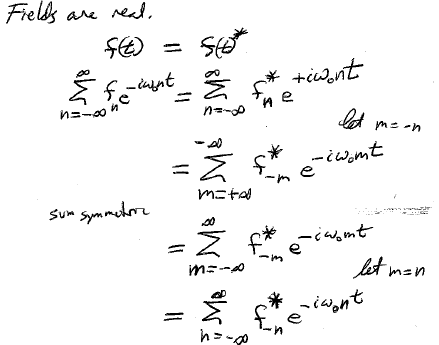 Fields are real.
f(t) = f(t)*
∞ ∑ n=-∞ f_n e^{-iω₀nt} = ∞ ∑ n=-∞ f_n^* e^{+iω₀nt}
let m=-n
= -∞ ∑ m=+∞ f_{-m}^* e^{-iω₀mt}
sum symmetric
= ∞ ∑ m=-∞ f_{-m}^* e^{-iω₀mt}
let m=n
= ∞ ∑ n=-∞ f_{-n}^* e^{-iω₀nt}